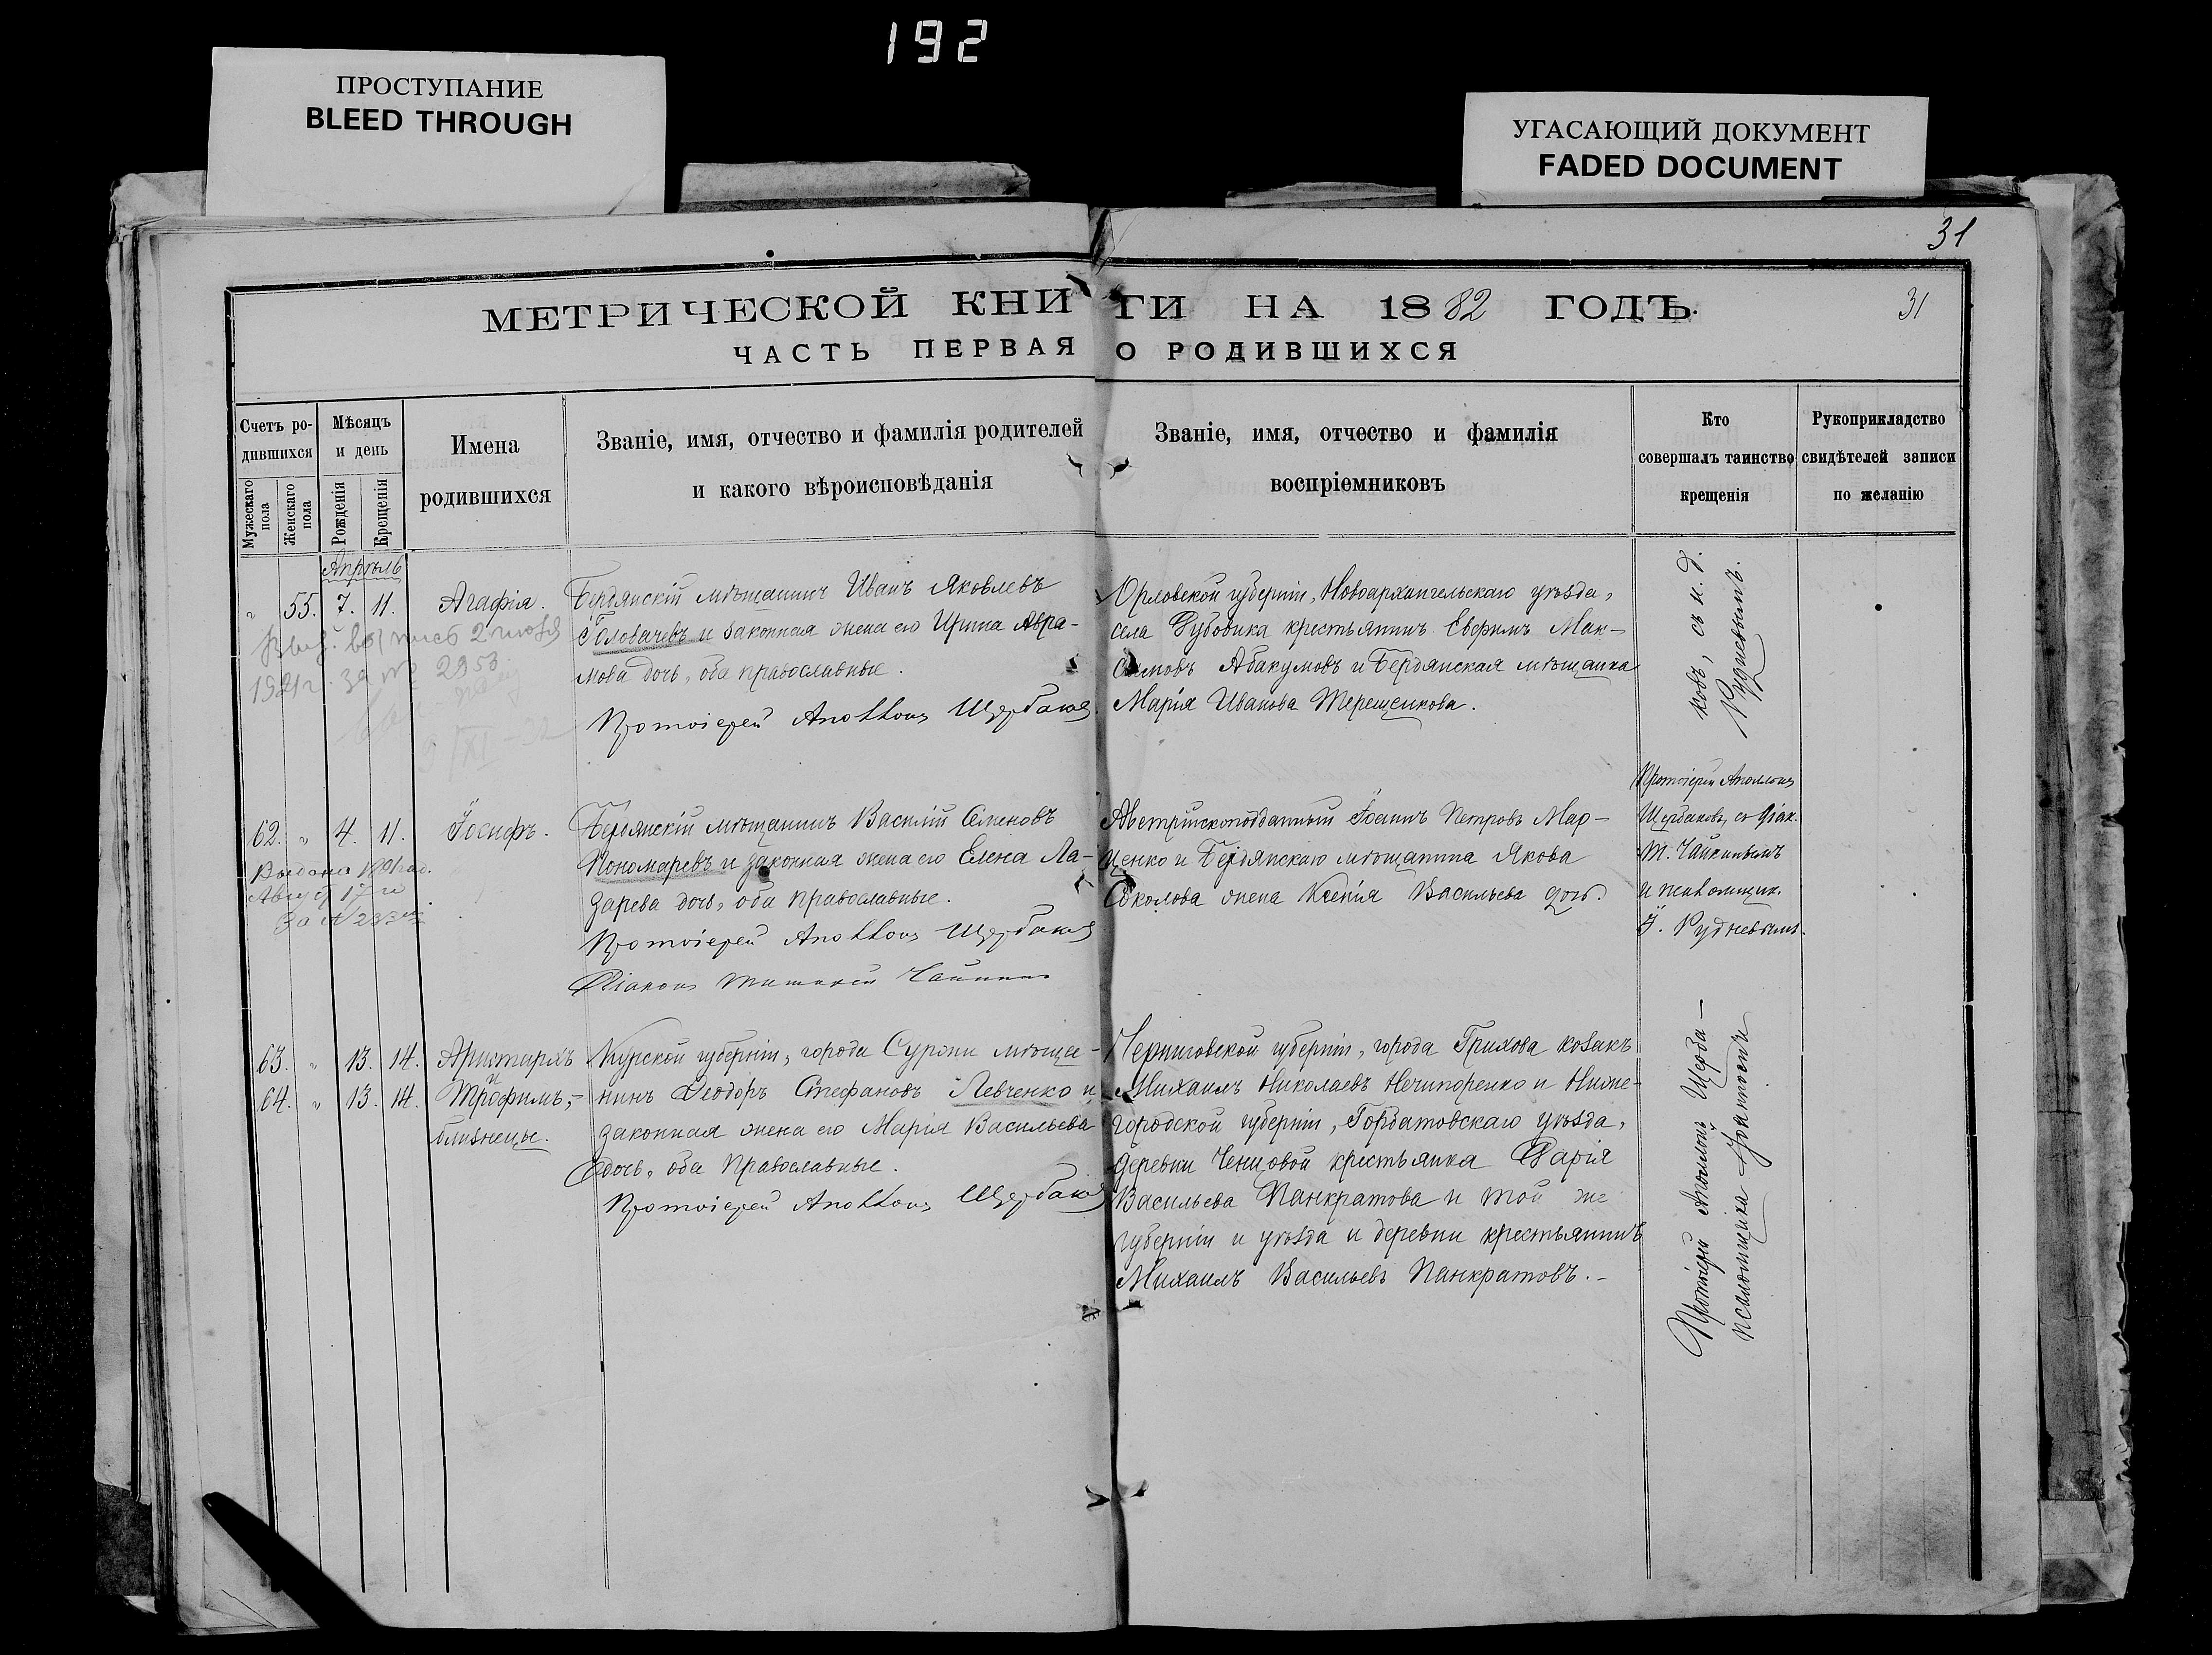 192
ПРОСТУПАНИЕ
BLEED THROUGH
УГАСАЮЩИЙ ДОКУМЕНТ
FADED DOCUMENT
31
МЕТРИЧЕСКОЙ КНИГИ НА 1882 ГОДЪ.
31
ЧАСТЬ ПЕРВАЯ О РОДИВШИХСЯ
Счетъ ро-
дившихся
Мужескаго пола
Женскаго пола
Мѣсяцъ
и день
Рожденія
Крещенія
Имена
родившихся
Званіе, имя, отчество и фамилія родителей
и какого вѣроисповѣданія
Званіе, имя, отчество и фамилія
воспріемниковъ
Кто
совершалъ таинство
крещенія
Рукоприкладство
свидѣтелей записи
по желанію
Апрѣль
" 55. 7. 11. Агафія.
2 июня
1921 г. за № 2953
Бердянскій мѣщанинъ Иванъ Яковлевъ
Головачевъ и законная жена его Ирина Авра-
мова дочь, оба православные.
Протоіерей Аполлонъ Щербаковъ
Орловской губерніи, Новоархангельскаго уѣзда,
села Дубовика крестьянинъ Евфимъ Мак-
симовъ Абакумовъ и Бердянская мѣщанка
Марія Иванова Терещенкова.
ковъ, съ и. д.
Рудневымъ.
62. " 4. 11. Іосифъ.
Выдана
Август 17 го
За №
Бердянскій мѣщанинъ Василій Семеновъ
Пономаревъ и законная жена его Елена Ла-
зарева дочь, оба православные.
Протоіерей Аполлонъ Щербаковъ
Діаконъ Чайкинъ
Австрійскоподданный Іоаннъ Петровъ Мар-
ценко и Бердянскаго мѣщанина Якова
Соколова жена Ксенія Васильева дочь.
Протоіерей Аполлонъ
Щербаковъ, съ діак.
Т. Чайкинымъ
и псаломщик.
І. Рудневымъ.
63. " 13. 14. Аристархъ
и
64. " 13. 14. Трофимъ, -
близнецы.
Курской губерніи, города Суджи мѣща-
нинъ Феодоръ Стефановъ Левченко и
законная жена его Марія Васильева
дочь, оба Православные.
Протоіерей Аполлонъ Щербаковъ
Черниговской губерніи, города Глухова козакъ
Михаилъ Николаевъ Нечипоренко и Ниже-
городской губерніи, Горбатовскаго уѣзда,
деревни Ченцовой крестьянка Дарія
Васильева Панкратова и той же
губерніи и уѣзда и деревни крестьянинъ
Михаилъ Васильевъ Панкратовъ. -
Протоіерей Аполлонъ Щерба-
псаломщика